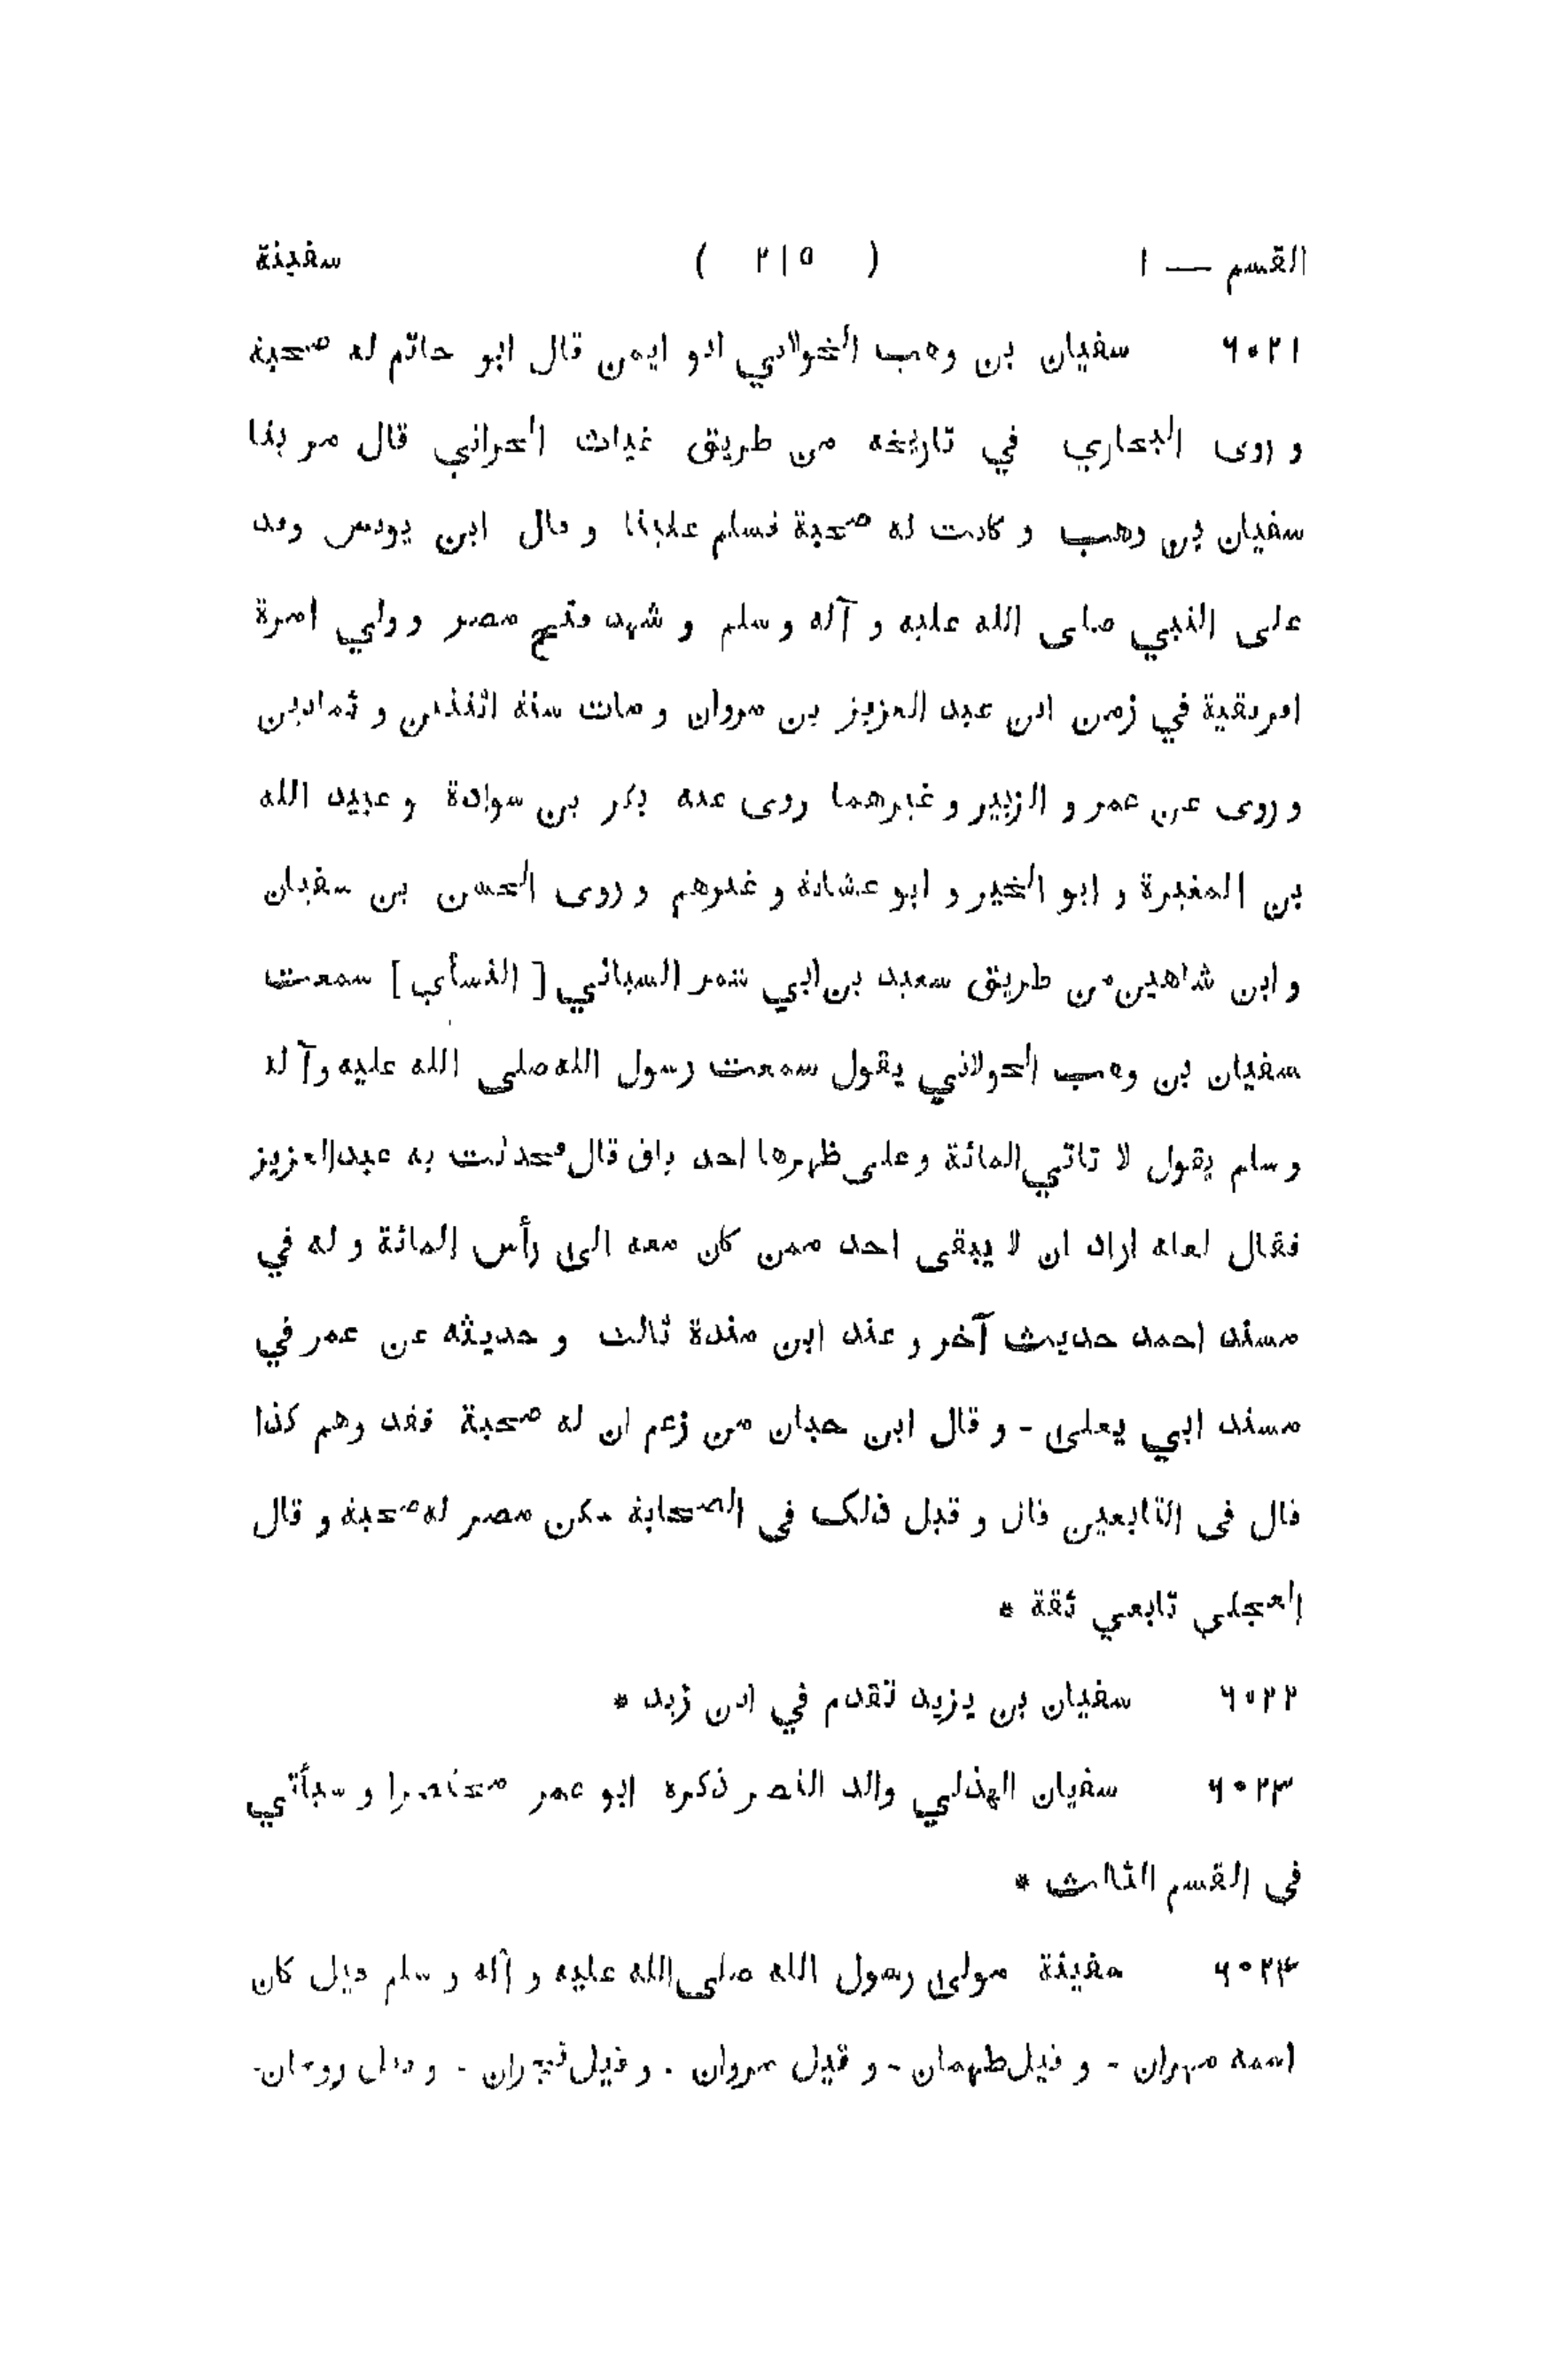 القسم — ١ ( ٢١٥ ) سفينة
٦٠٢١ سفيان بن وهب الخولاني ابو ايمن قال ابو حاتم له صحبة
و روى البخاري في تاريخه من طريق غياث الحراني قال مر بنا
سفيان بن وهب و كانت له صحبة فسلم علينا و قال ابن يونس وفد
على النبي صلى الله عليه و آله و سلم و شهد فتح مصر و ولي امرة
افريقية في زمن ابن عبد العزيز بن مروان و مات سنة اثنتين و ثمانين
و روى عن عمر و الزبير و غيرهما روى عنه بكر بن سوادة و عبيد الله
بن المغيرة و ابو الخير و ابو عشانة و غيرهم و روى الحسن بن سفيان
و ابن شاهين من طريق سعيد بن ابي شمر السبائي [ النسأي ] سمعت
سفيان بن وهب الخولاني يقول سمعت رسول الله صلى الله عليه و آله
و سلم يقول لا تاتي المائة و على ظهرها احد باق قال فحدثت به عبد العزيز
فقال لعله اراد ان لا يبقى احد ممن كان معه الى رأس المائة و له في
مسند احمد حديث آخر و عند ابن مندة ثالث و حديثه عن عمر في
مسند ابي يعلى - و قال ابن حبان من زعم ان له صحبة فقد وهم كذا
قال في التابعين قال و قبل ذلك في الصحابة سكن مصر له صحبة و قال
العجلي تابعي ثقة *
٦٠٢٢ سفيان بن يزيد تقدم في ابن زيد *
٦٠٢٣ سفيان الهذلي والد النضر ذكره ابو عمر مختصرا و سيأتي
في القسم الثالث *
٦٠٢٤ سفينة مولى رسول الله صلى الله عليه و آله و سلم قيل كان
اسمه مهران - و قيل طهمان - و قيل مروان - و قيل نجران - و قيل رومان -